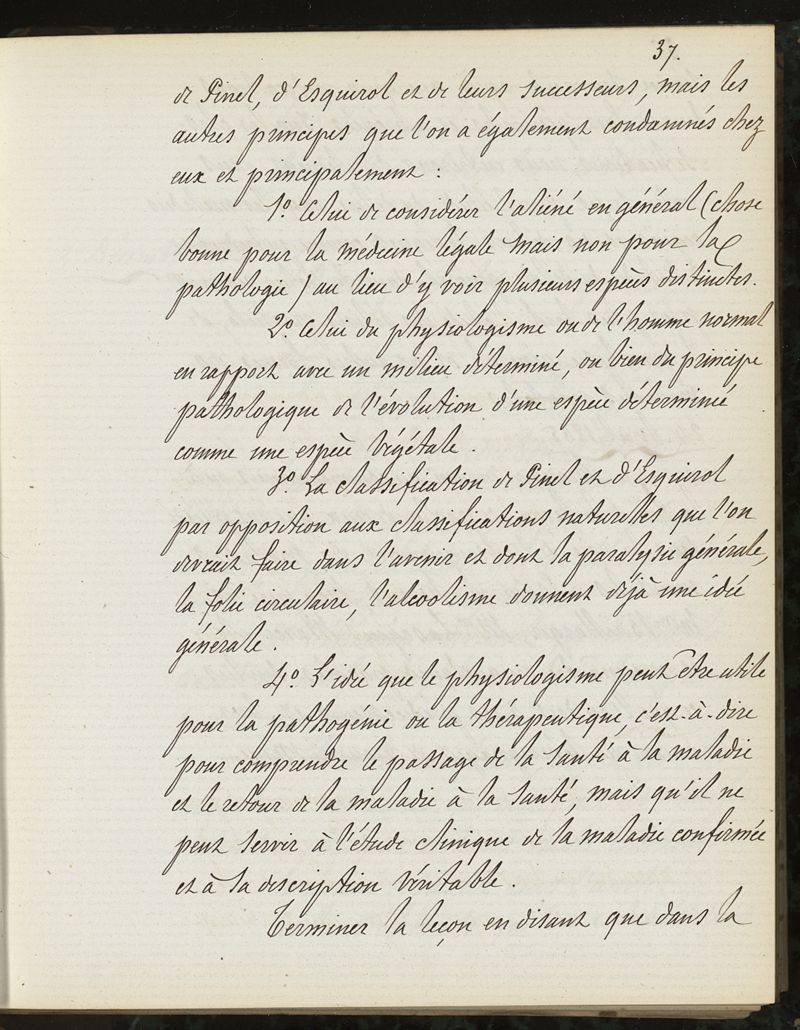 37.
de Pinel, d'Esquirol et de leurs successeurs, mais les
autres principes que l'on a également condamnés chez
eux et principalement :
1º. Celui de considérer l'aliéné en général (chose
bonne pour la médecine légale mais non pour la
pathologie) au lieu d'y voir plusieurs espèces distinctes.
2º. Celui du physiologisme ou de l'homme normal
en rapport avec un milieu déterminé, ou bien du principe
pathologique de l'évolution d'une espèce déterminée
comme une espèce végétale.
3º. La classification de Pinel et d'Esquirol
par opposition aux classifications naturelles que l'on
devrait faire dans l'avenir et dont la paralysie générale,
la folie circulaire, l'alcoolisme donnent déjà une idée
générale.
4º. L'idée que le physiologisme peut être utile
pour la pathogénie ou la thérapeutique, c'est-à-dire
pour comprendre le passage de la santé à la maladie
et le retour de la maladie à la santé, mais qu'il ne
peut servir à l'étude clinique de la maladie confirmée
et à sa description véritable.
Terminer la leçon en disant que dans la